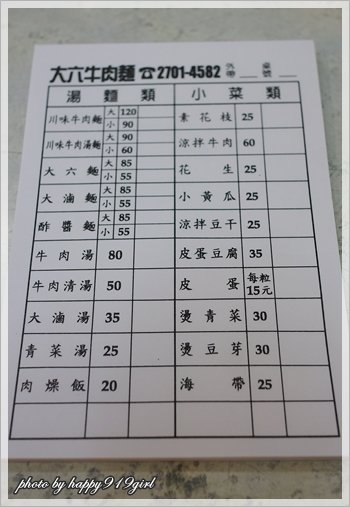 大六牛肉麵 ☎2701-4582 外帶 桌號
湯麵類 小菜類
川味牛肉麵 大 120 小 90 素花枝 25
川味牛肉湯麵 大 90 小 60 涼拌牛肉 60
大六麵 大 85 小 55 花生 25
大滷麵 大 85 小 55 小黃瓜 25
酢醬麵 大 85 小 55 涼拌豆干 25
牛肉湯 80 皮蛋豆腐 35
牛肉清湯 50 皮蛋 每粒15元
大滷湯 35 燙青菜 30
青菜湯 25 燙豆芽 30
肉燥飯 20 海帶 25
photo by happy919girl